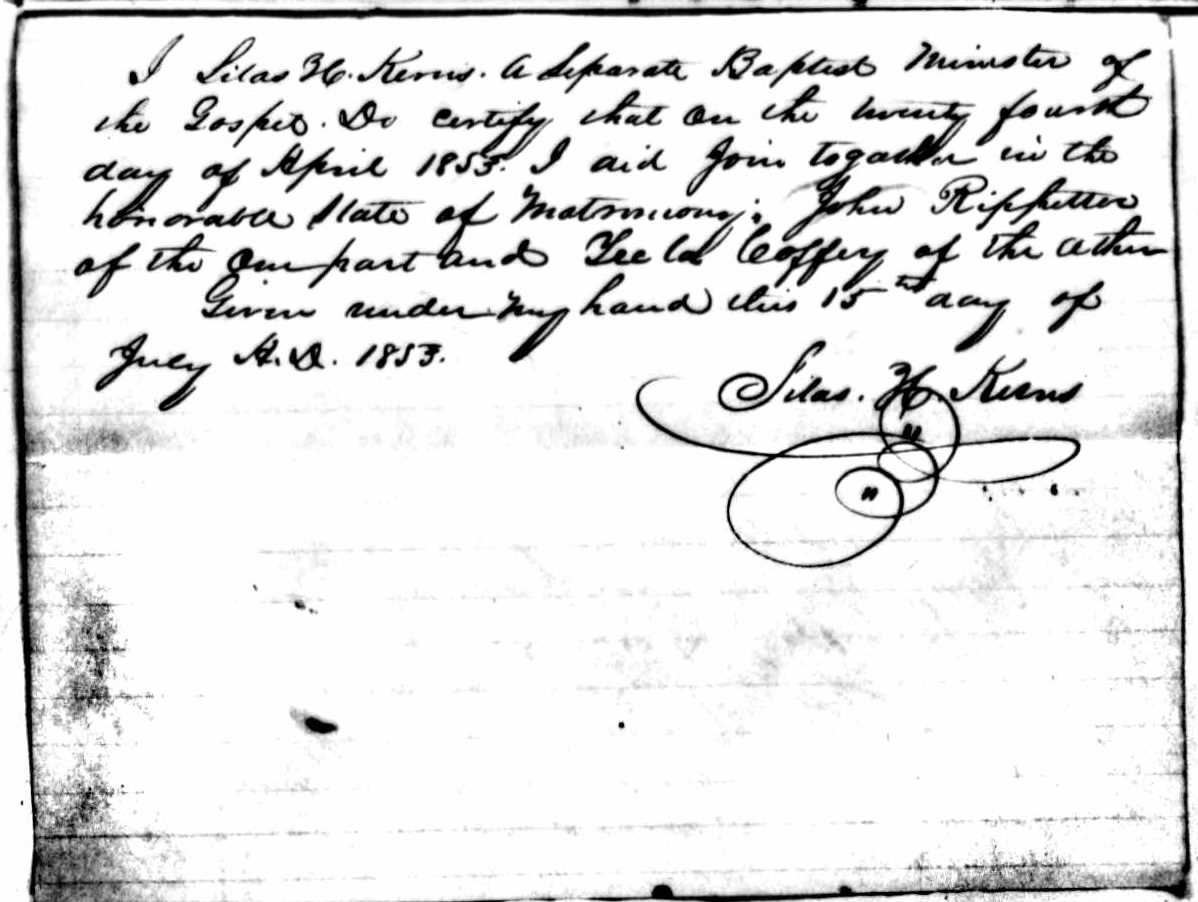 I Silas H. Kerns. A Separate Baptist Minister of
the Gospel. Do certify that on the twenty fourth
day of April 1853. I did Join together in the
honorable State of Matrimony; John Rippetter
of the one part and Coffey of the other
Given under my hand this 15th day of
July A.D. 1853.
Silas. H. Kerns